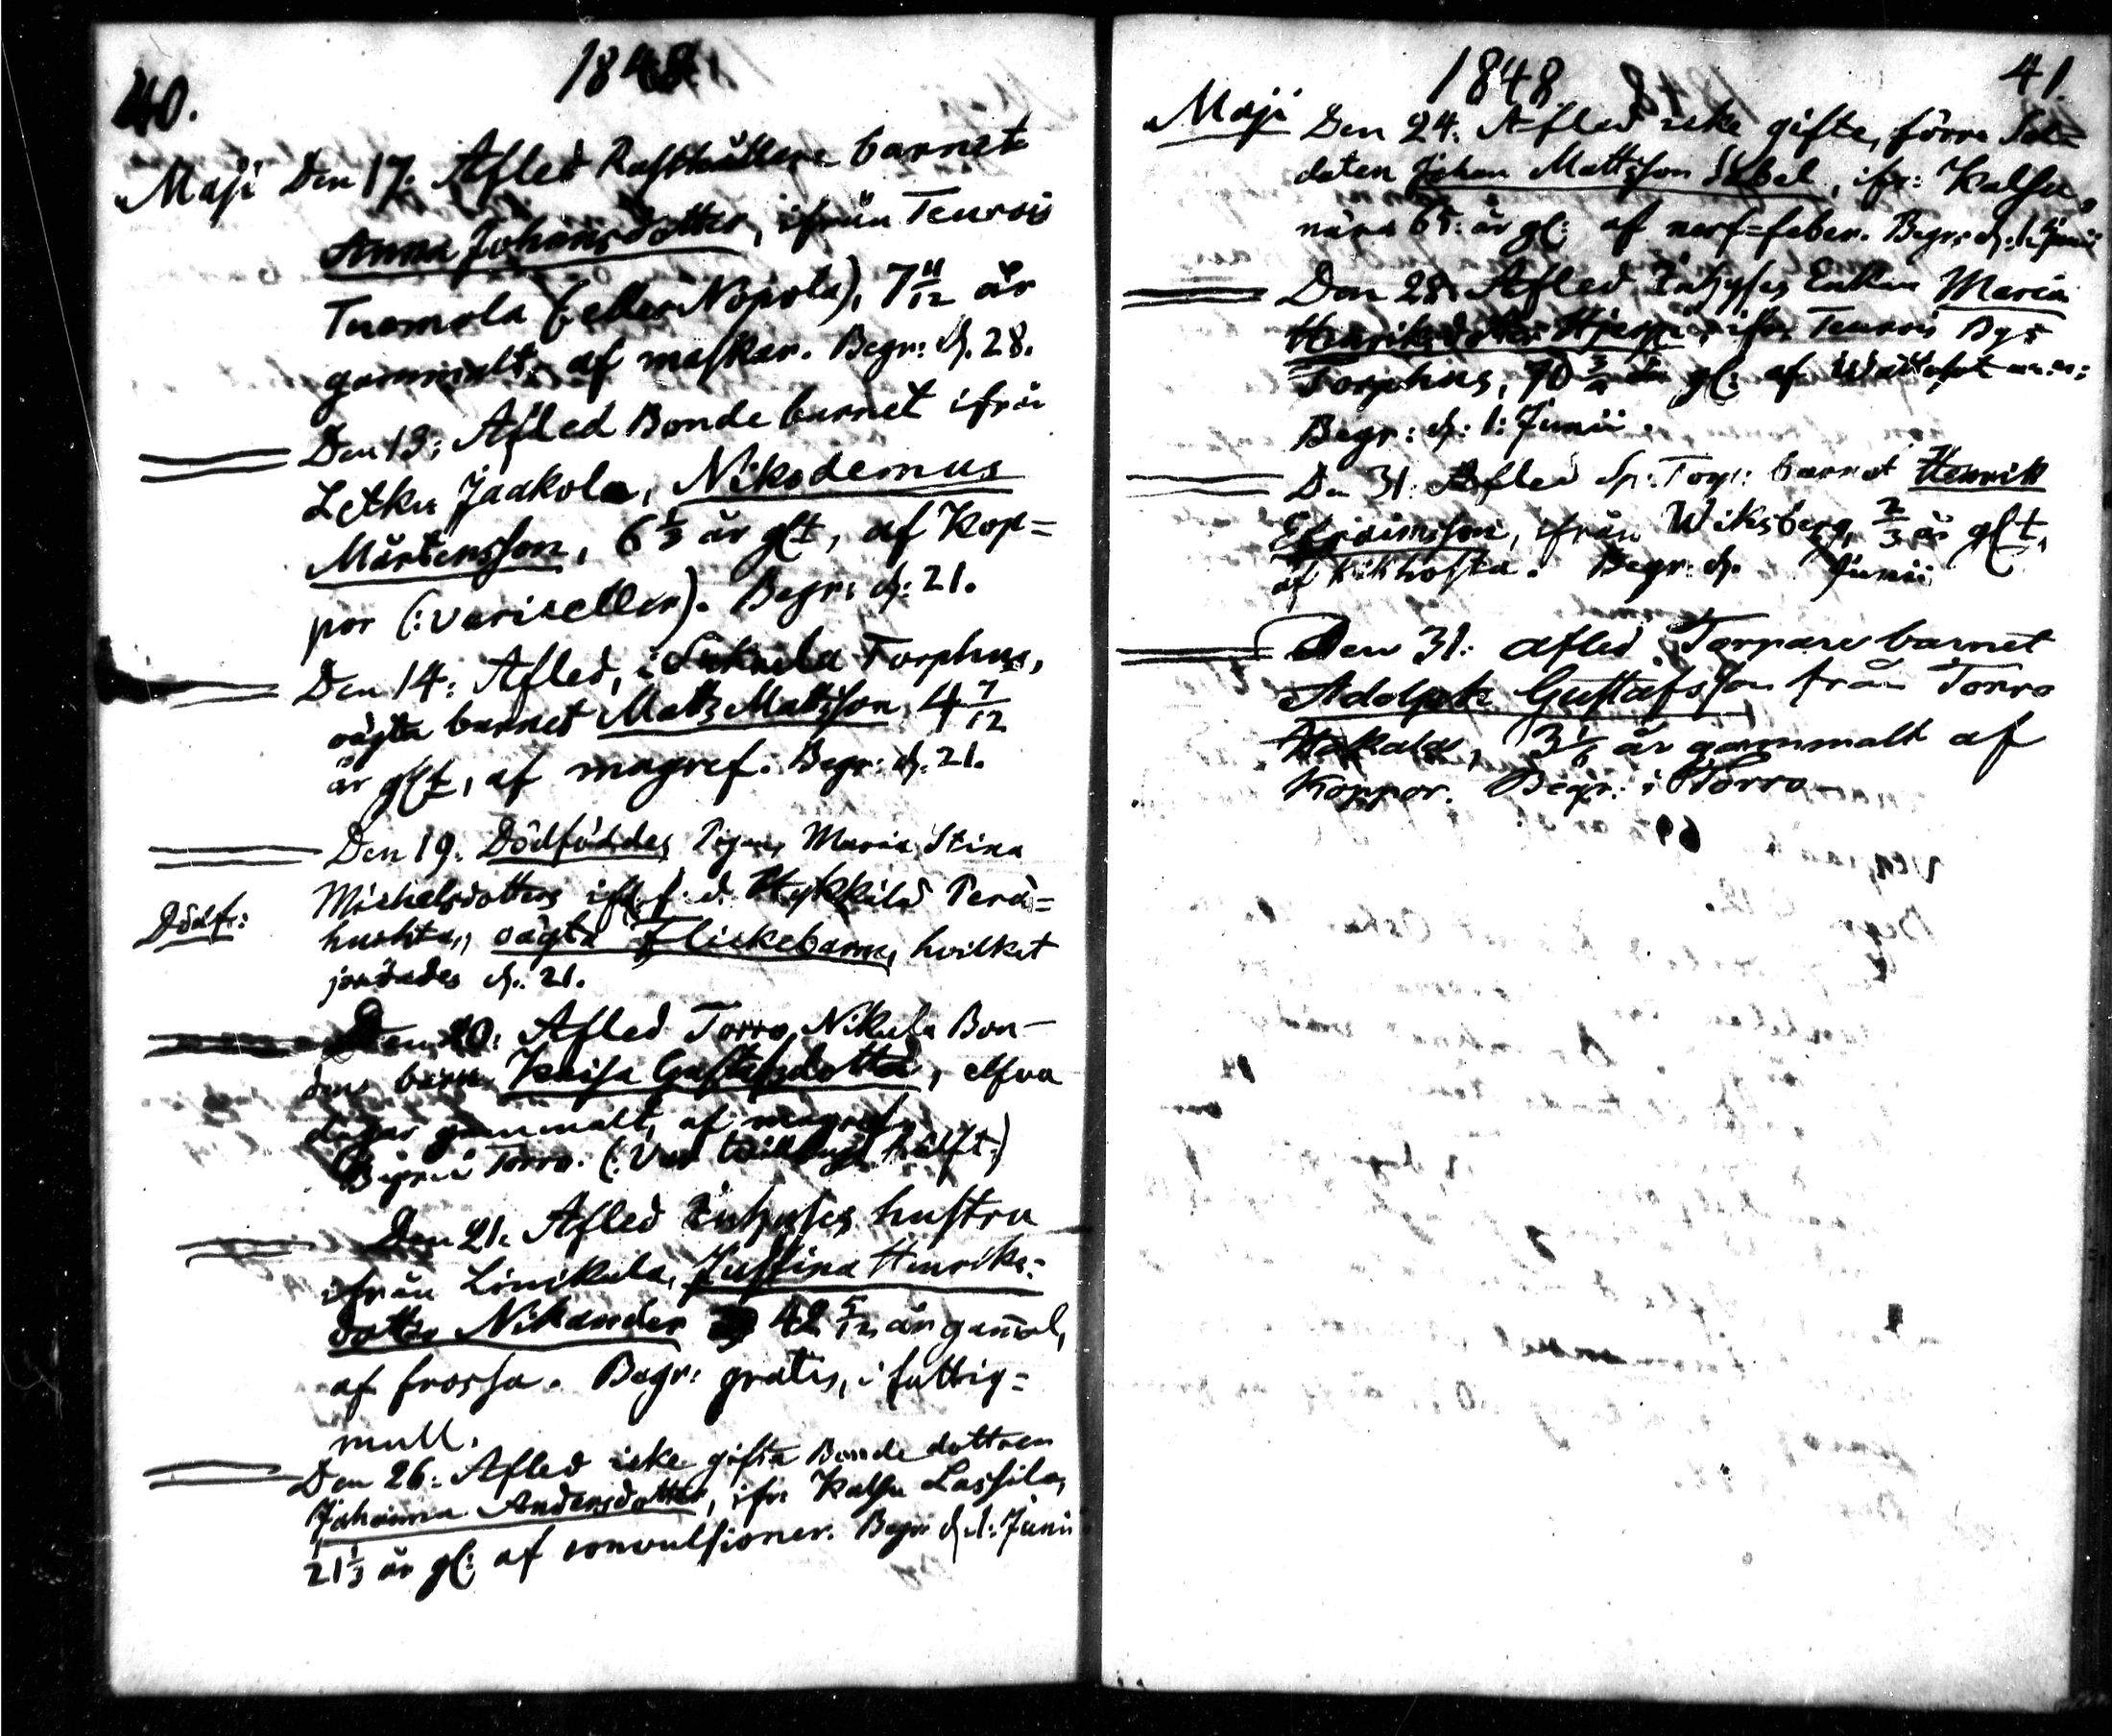 40.
1848.
Maji Den 17. Afled Rusthållare barnet
Anna Johansdotter, ifrån Teurois
Tuomola (: eller Nopola), 7 11/12 år
gammalt, af maskar. Begr: d. 28.
Den 13: Afled Bonde barnet ifrån
Letku Jaakola, Nikodemus
Mårtensson, 6 1/3 år glt, af Kop=
por (: variceller). Begr: d: 21.
Den 14: Afled, i Torphus,
oägta barnet Matts Mattsson, 4 7/12
år glt, af magref. Begr: d. 21.
Den 19. Dödföddes Pigans Maria Stina
Dödf:
Michelsdotters ifr. Hykkilä Perä=
huhta, oägta Flickebarn, hvilket
jordades d. 21.
Den 20: Afled Torro Nikula Bon-
dens barn Kaisa Gustafsdotter, elfva
dagar gammalt, af magref.
Begr. i Torro. (: Var tvilling hälft:)
Den 21. Afled Inhyses hustru
ifrån Linikkala, Justina Henriks=
dotter Nikander 42 5/12 år gam̄al,
af frossa. Begr: gratis, i fattig=
mull.
Den 26: Afled icke gifta Bonde dottren
Johanna Andersdotter, ifr: Kalsu Lassila,
21 1/3 år gl: af convulsioner. Begr d. 1: Junii
1848.
41.
Maji Den 24. Afled icke gifte, förre Sol=
daten Johan Mattsson Sabel, ifr: Kalsu,
nära 65: år gl: af nerf=feber. Begr: d: 1. Junii
Den 28. Afled Inhyses Enkan Maria
Henriksdotter ifr. Teurois Bys
Torphus, 70 3/4 år gl: af
Begr: d: 1: Junii.
Den 31: Afled Sp: Torp: barnet Henrik
Efraimsson, ifrån Wiksberg, 2/3 år glt,
af kikhosta. Begr: d. Junii
Den 31: afled Torpare barnet
Adolph Gustafsson från Torro
Hakala, 3 1/6 år gammalt af
Koppor. Begr: i Torro